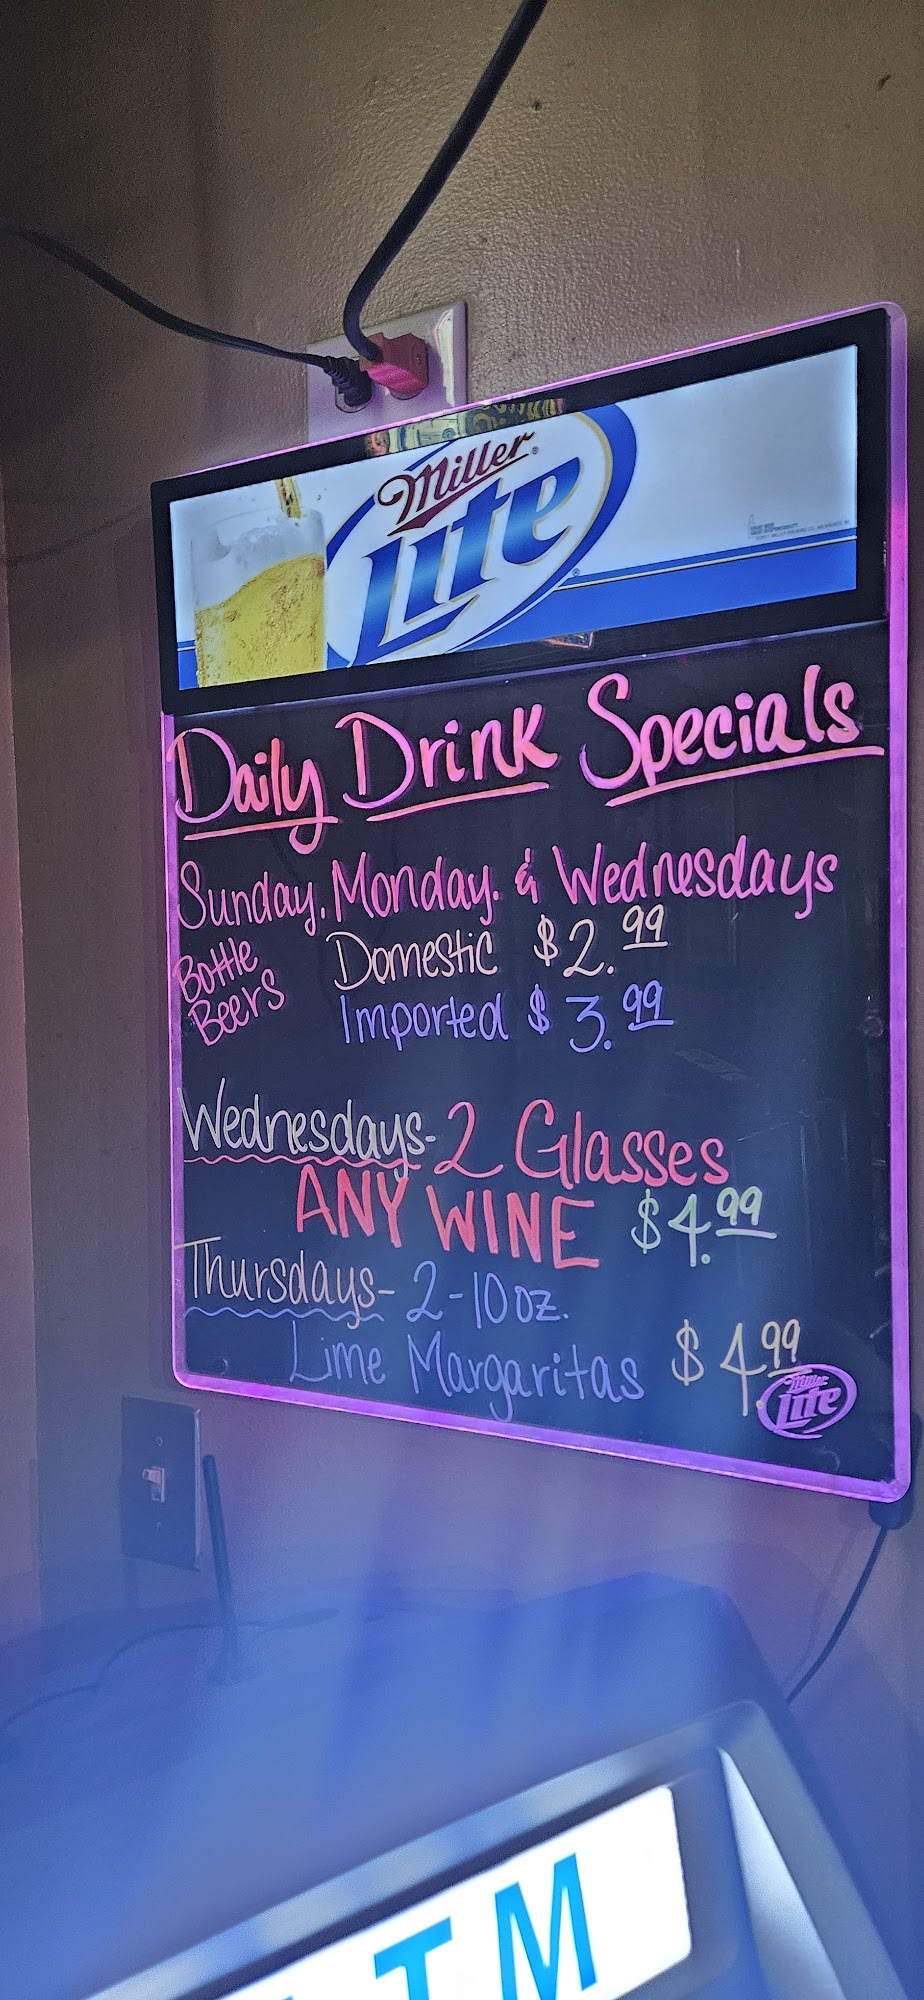 Miller
Lite
Daily Drink Specials
Sunday, Monday, & Wednesdays
Bottle Beers
Domestic $2.99
Imported $3.99
Wednesdays- 2 Glasses
ANY WINE $4.99
Thursdays- 2-10 oz.
Lime Margaritas $4.99
Miller
Lite
TM